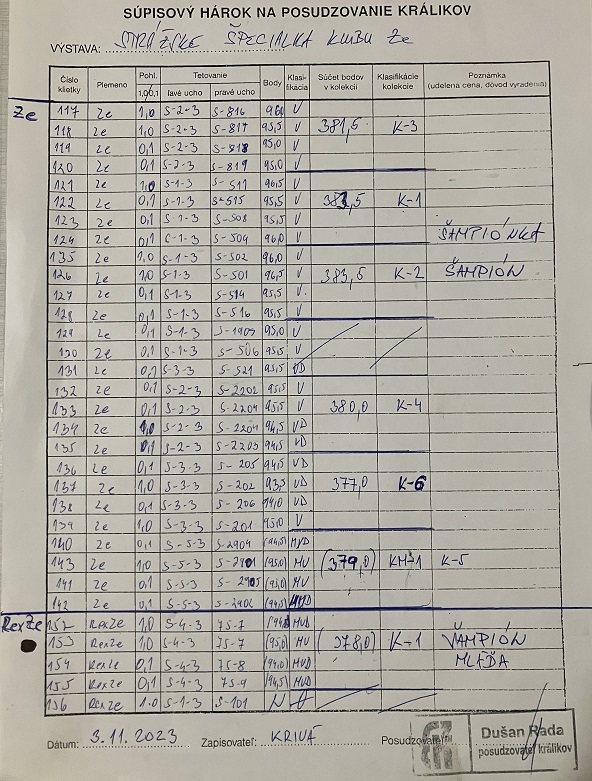 SÚPISOVÝ HÁROK NA POSUDZOVANIE KRÁLIKOV
VÝSTAVA: STRÁŽSKE ŠPECIALKA KLUBU Ze
Číslo klietky Plemeno Pohl. 1,0 0,1 Tetovanie ľavé ucho pravé ucho Body Klasifikácia Súčet bodov v kolekcii Klasifikácie kolekcie Poznámka (udelena cena, dôvod vyradenia)
Ze 117 Ze 1,0 S-2-3 S-816 96,0 V
118 Ze 1,0 S-2-3 S-817 95,5 V 381,5 K-3
119 Ze 0,1 S-2-3 S-818 95,0 V
120 Ze 0,1 S-2-3 S-819 95,0 V
121 Ze 1,0 S-1-3 S-511 V
122 Ze 0,1 S-1-3 S-515 95,5 V K-1
123 Ze 0,1 S-1-3 S-508 95,5 V
124 Ze 0,1 S-1-3 S-504 96,0 V ŠAMPIÓNKA
Ze 1,0 S-1-3 S-502 96,0 V
126 Ze 1,0 S-1-3 S-501 96,5 V 383,5 K-2 ŠAMPIÓN
127 Ze 0,1 S-1-3 S-514 95,5 V
128 Ze 0,1 S-1-3 S-516 95,5 V
129 Ze 0,1 S-1-3 95,0 V
130 Ze 0,1 S-1-3 S-506 95,5 V
131 Ze S-3-3 S-521 VD
132 Ze 0,1 S-2-3 S-2202 95,5 V
133 Ze 0,1 S-2-3 S-2204 95,5 V 380,0 K-4
134 Ze 1,0 S-2-3 94,5 VD
135 Ze 0,1 S-2-3 S-2203 94,5 VD
136 Ze 0,1 S-3-3 S-205 94,5 VD
137 Ze 1,0 S-3-3 S-202 VD 377,0 K-6
138 Ze 0,1 S-3-3 S-206 94,0 VD
139 Ze 1,0 S-3-3 S-201 95,0 V
140 Ze 0,1 S-5-3 S-2904 (94,5) MVD
143 Ze 1,0 S-5-3 (95,0) MV (379,0) KM-1 K-5
141 Ze 0,1 S-5-3 (95,0) MV
142 Ze 0,1 S-5-3 (94,5)
RexZe 152 RexZe 1,0 S-4-3 75-7 MVD
153 RexZe 1,0 S-4-3 75-7 (95,0) MV (378,0) ŠAMPIÓN
154 RexZe 0,1 S-4-3 75-8 (94,0) MVD MLÁĎA
155 RexZe 0,1 S-4-3 75-9 (94,5) MVD
156 RexZe 1.0 S-1-3 S-101
Dátum: 3.11.2023 Zapisovateľ: KRIVÁ Posudzovateľ:
Dušan Rada
posudzovateľ králikov